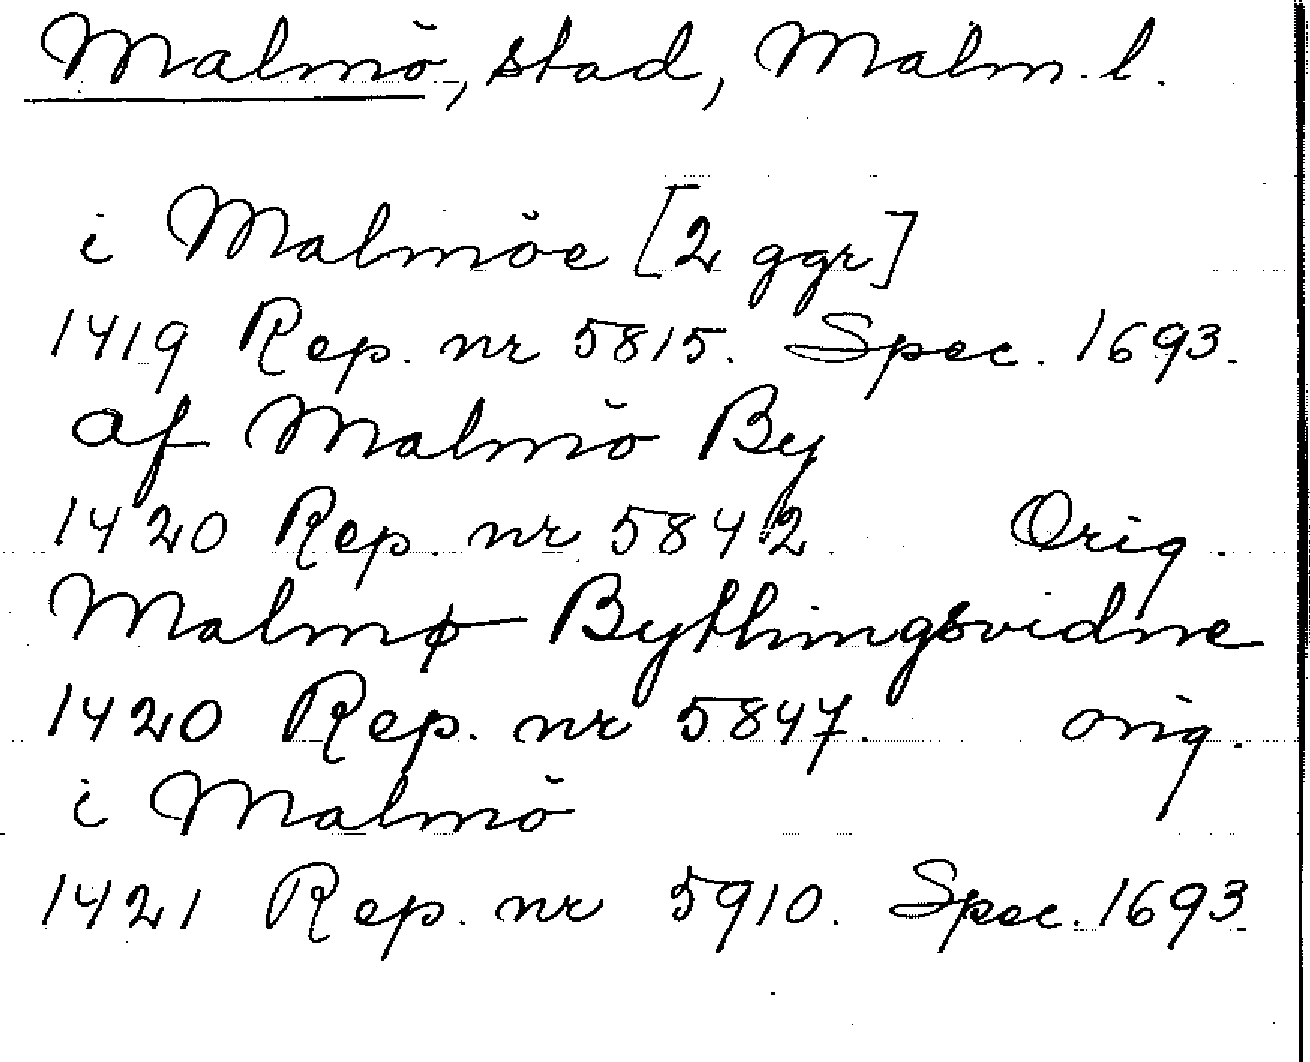 Malmö, stad, Malm. l.
i Malmöe [2 ggr]
1419 Rep. nr 5815. Spec. 1693.
af Malmö By
1420 Rep. nr 5842. Orig.
Malmø Bythingsvidne
1420 Rep. nr 5847. orig.
i Malmö
1421 Rep. nr 5910. Spec. 1693